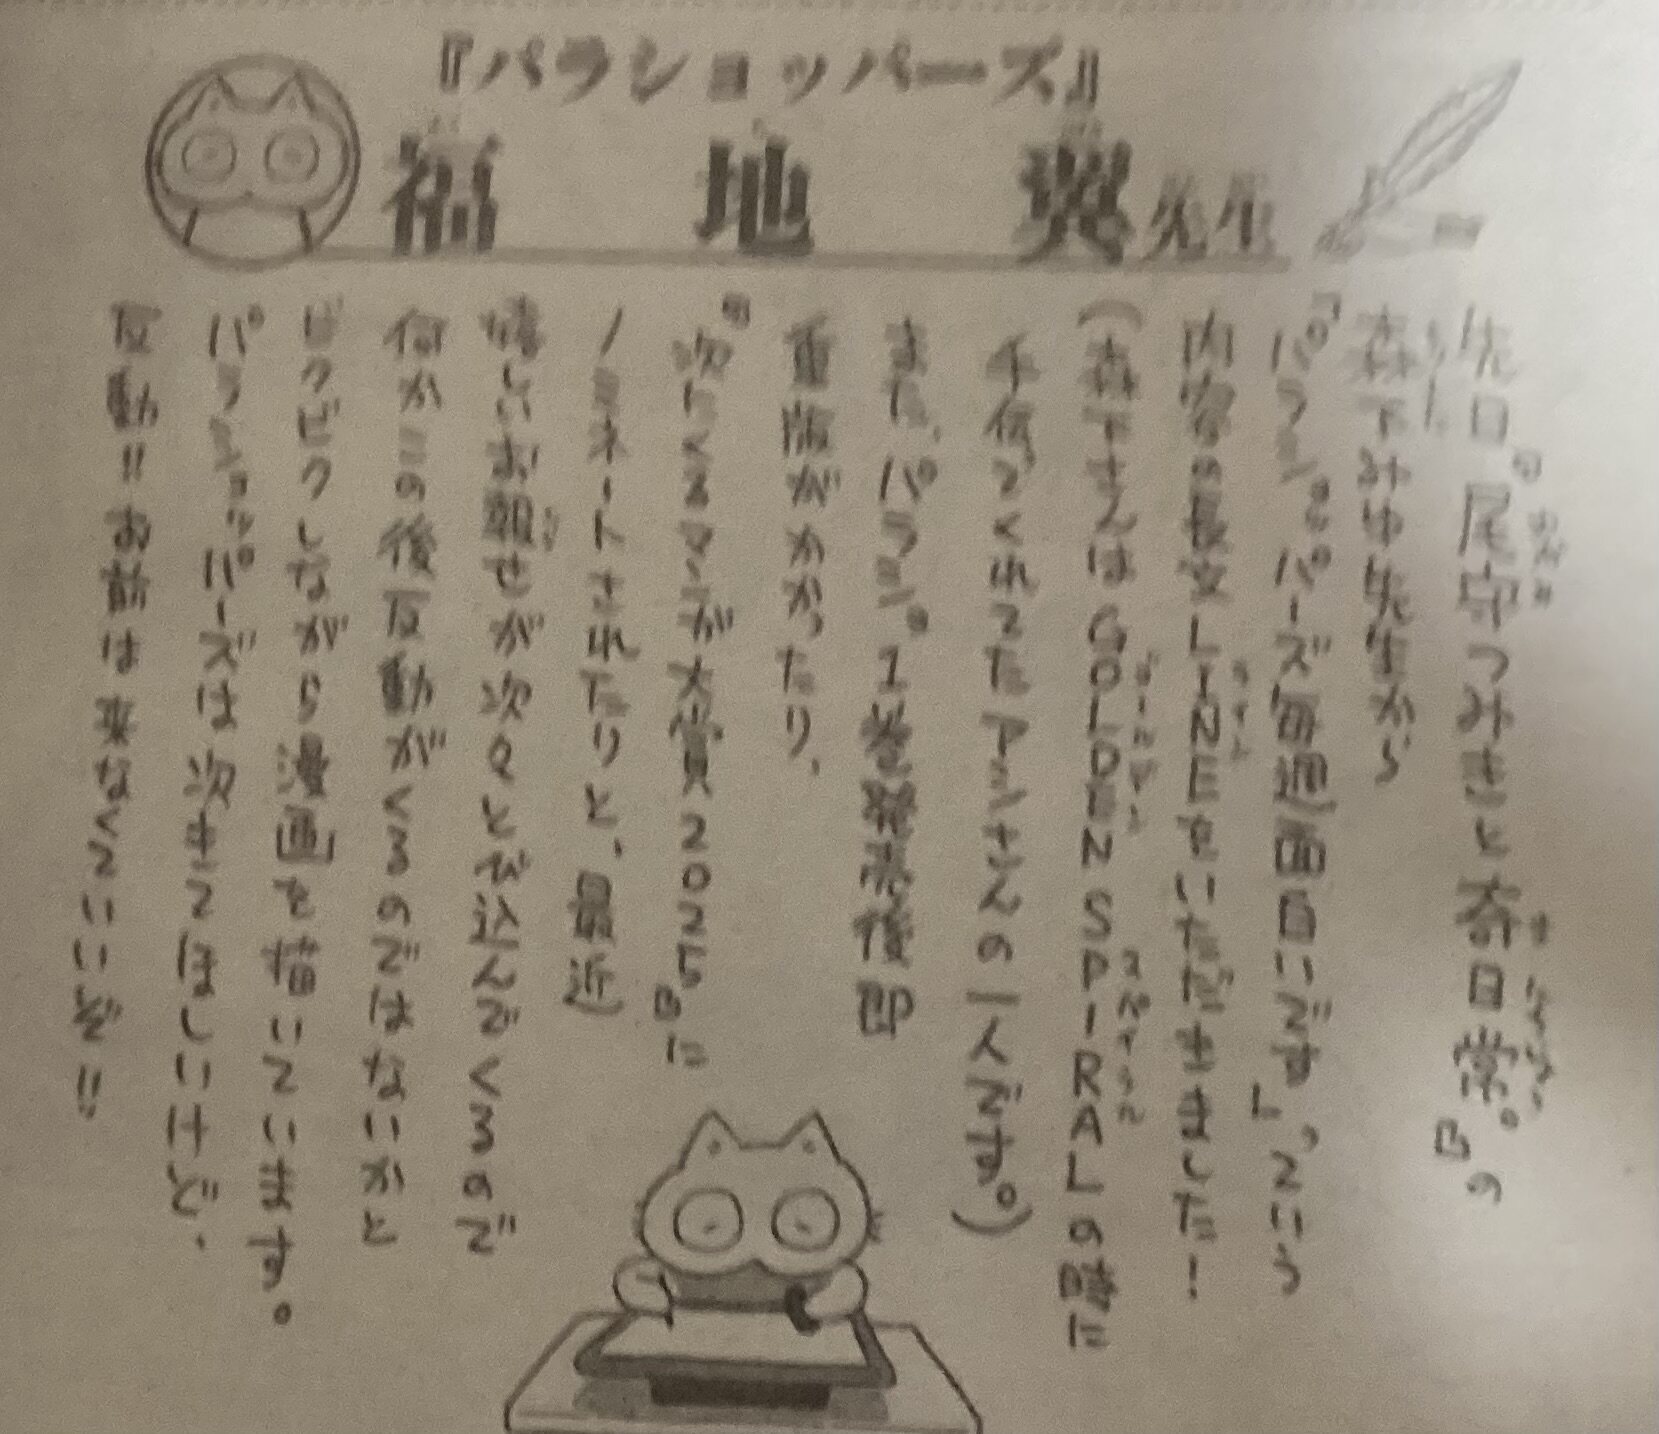 『パラショッパーズ』
福地翼先生
先日『尾守つみきと奇日常。』の
森下みゆ先生から
「パラショッパーズ毎週面白いです」という
内容の長文LINEをいただきました！
(森下さんはGOLDEN SPIRALの時に
手伝ってくれてたアシさんの一人です。)
また、パラショ1巻発売後即
重版がかかったり、
『次にくるマンガ大賞2025』に
ノミネートされたりと、最近
嬉しいお報せが次々と飛込んでくるので
何かこの後反動がくるのではないかと
ビクビクしながら漫画を描いています。
パラショッパーズは次きてほしいけど、
反動＝お前は来なくていいぞ＝